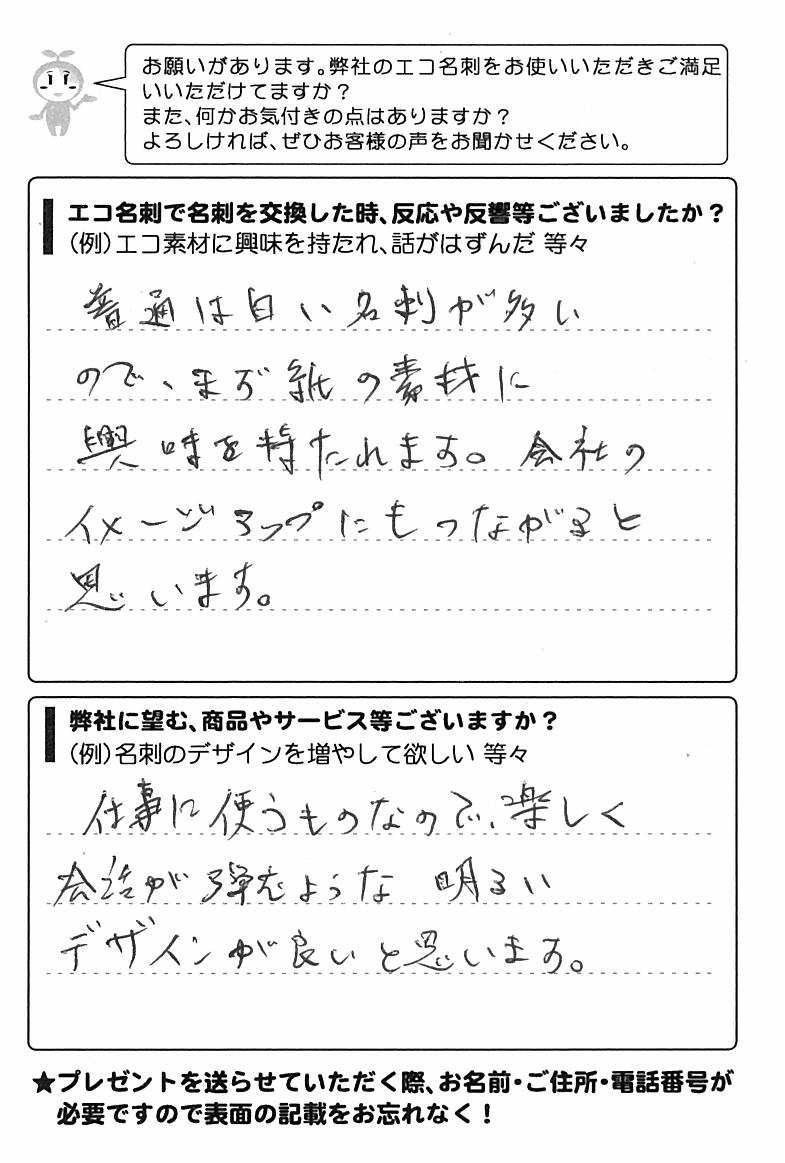 お願いがあります。弊社のエコ名刺をお使いいただきご満足
いいただけてますか？
また、何かお気付きの点はありますか？
よろしければ、ぜひお客様の声をお聞かせください。
エコ名刺で名刺を交換した時、反応や反響等ございましたか？
（例）エコ素材に興味を持たれ、話がはずんだ 等々
普通は白い名刺が多い
ので、まず紙の素材に
興味を持たれます。会社の
イメージアップにもつながると
思います。
弊社に望む、商品やサービス等ございますか？
（例）名刺のデザインを増やして欲しい 等々
仕事に使うものなので、楽しく
会話が弾むような 明るい
デザインが良いと思います。
★プレゼントを送らせていただく際、お名前・ご住所・電話番号が
必要ですので表面の記載をお忘れなく！